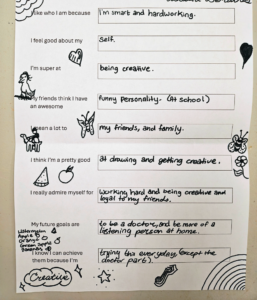 I like who I am because
I'm smart and hardworking.
I feel good about my
self.
I'm super at
being creative.
My friends think I have
an awesome
funny personality. (At school)
I mean a lot to
my friends, and family.
I think I'm a pretty good
at drawing and getting creative.
I really admire myself for
working hard and being creative and
loyal to my friends.
My future goals are
to be a doctor, and be more of a
listening person at home.
Watermelon
Apple
Orange
Green apple
Bananas
I know I can achieve
them because I'm
trying this everyday, except the
doctor part).
Creative